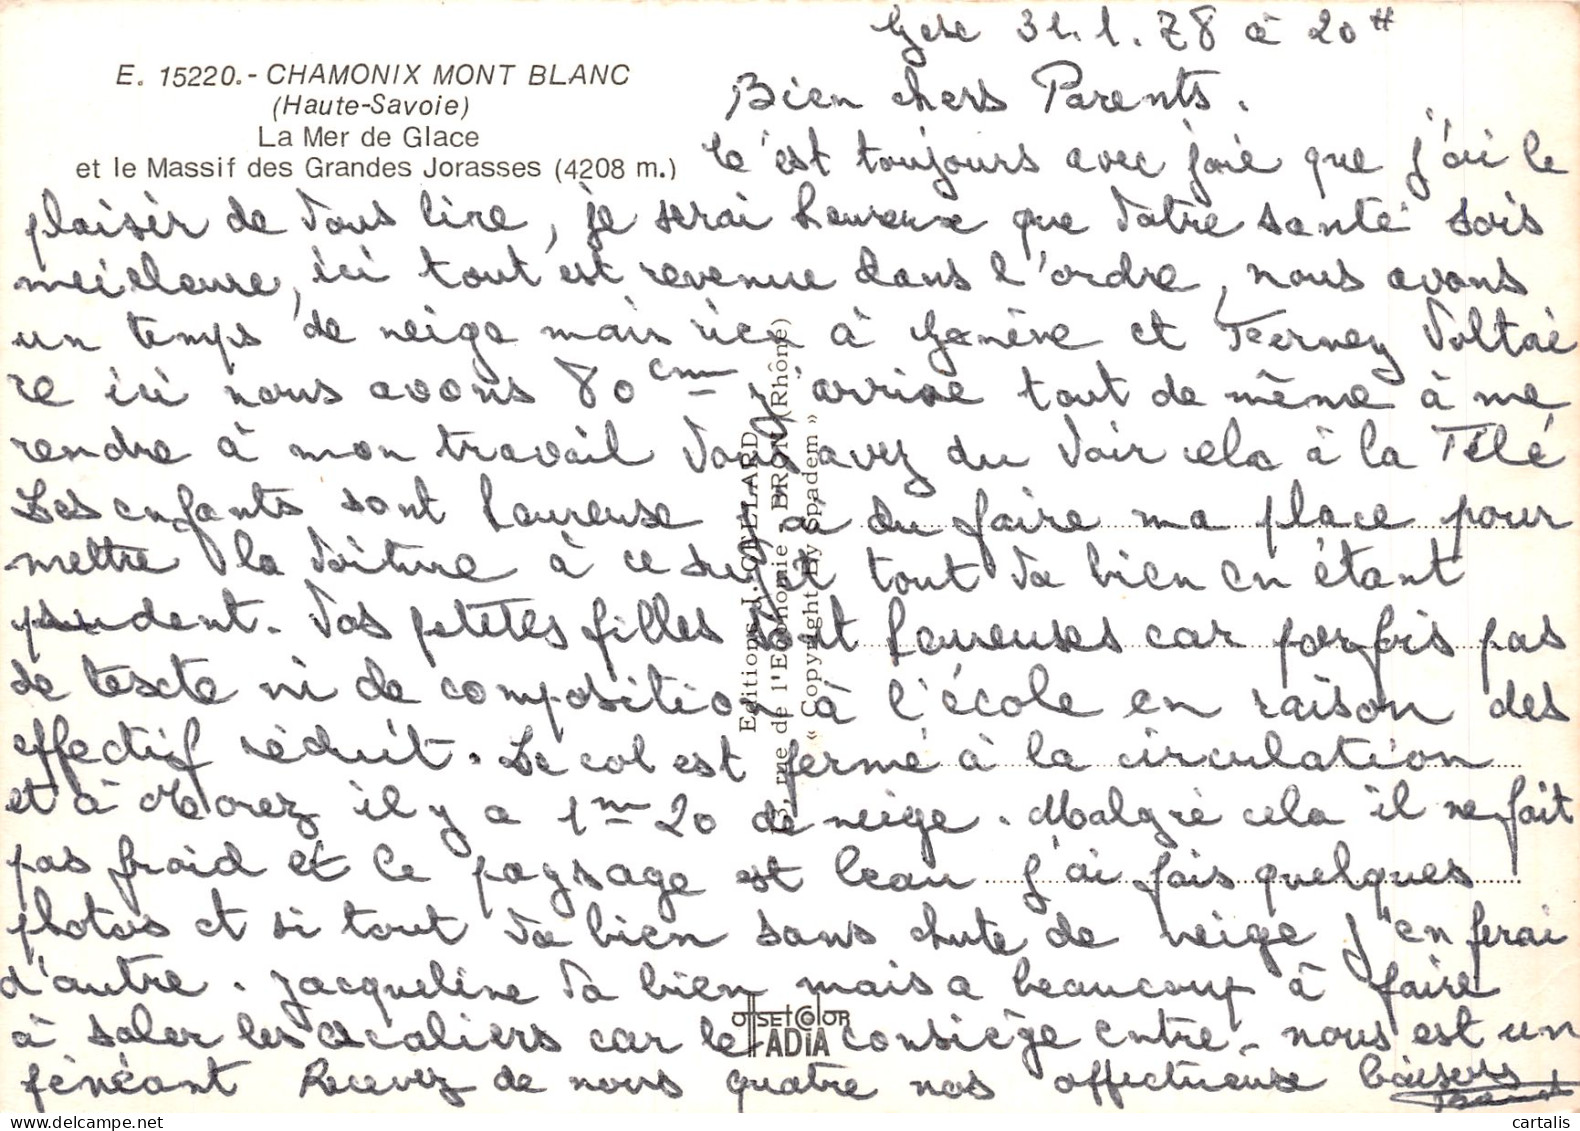 Gex 31.1.78 à 20H
E. 15220.- CHAMONIX MONT BLANC
(Haute-Savoie)
La Mer de Glace
et le Massif des Grandes Jorasses (4208 m.)
Bien chers Parents.
C'est toujours avec joie que j'ai le
plaisir de vous lire, je serai heureux que votre santé sois
meilleure, ici tout est revenue dans l'ordre, nous avons
un temps de neige mais rien à Genève et Ferney Voltai
re ici nous avons 80 cm j'arrive tout de même à me
rendre à mon travail Vous avez du voir cela à la Télé
Les enfants sont heureuse j'ai du faire ma place pour
mettre la voiture à ce sujet tout va bien en étant
prudent. Vos petites filles sont heureuses car parfois pas
de texte ni de composition à l'école en raison des
effectif réduit. Le col est fermé à la circulation
et à Morez il y a 1m20 de neige. Malgré cela il ne fait
pas froid et le paysage est beau j'ai fais quelques
photos et si tout va bien sans chute de neige j'en ferai
d'autre. Jacqueline va bien mais a beaucoup à faire
à saler les escaliers car le consiège entre nous est un
fénéant Recevez de nous quatre nos affectueux baisers
Editions J. CELLARD
rue de l'Economie BRON (Rhône)
« Copyright By Spadem »
OffSET COLOR
IADIA
cartalis